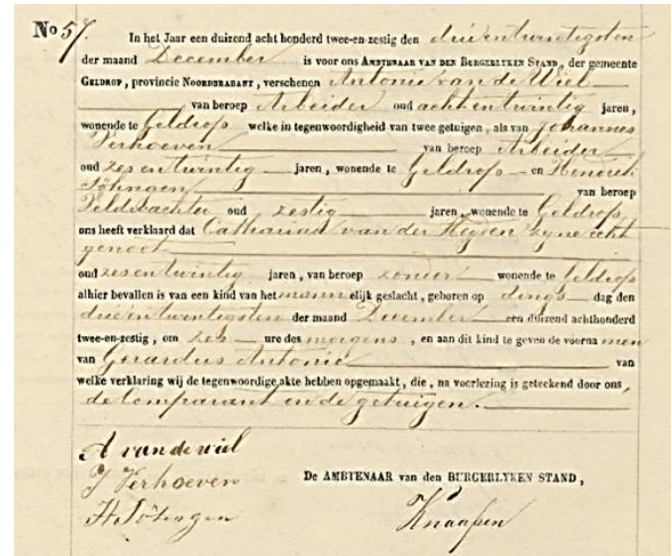 No 57.
In het Jaar een duizend acht honderd twee-en-zestig den drieentwintigsten
der maand December is voor ons AMBTENAAR VAN DEN BURGERLYKEN STAND, der gemeente
GELDROP, provincie NOORDBRABANT, verschenen Antonie van de Wiel
van beroep Arbeider oud achtentwintig jaren,
wonende te Geldrop welke in tegenwoordigheid van twee getuigen, als van Johannes
Verhoeven van beroep Arbeider
oud zesentwintig jaren, wonende te Geldrop en Hendrik
van beroep
Veldwachter oud zestig jaren, wonende te Geldrop,
ons heeft verklaard dat Catharina van der Heyden zyne echt
genoot
oud zesentwintig jaren, van beroep zonder wonende te Geldrop
alhier bevallen is van een kind van het mannelijk geslacht, geboren op dings dag den
drieentwintigsten der maand December een duizend achthonderd
twee-en-zestig, om zes ure des morgens, en aan dit kind te geven de voornamen
van Gerardus Antonie van
welke verklaring wij de tegenwoordige akte hebben opgemaakt, die, na voorlezing is geteekend door ons,
de Comparant en de getuigen.
A van de wiel
J Verhoeven
De AMBTENAAR van den BURGERLYKEN STAND,
Knaapen